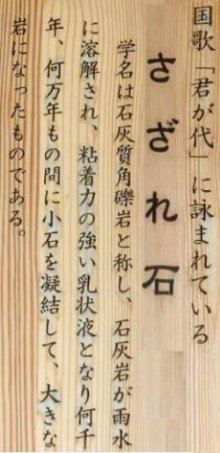 国歌「君が代」に詠まれている
さざれ石
学名は石灰質角礫岩と称し、石灰岩が雨水
に溶解され、粘着力の強い乳状液となり何千
年、何万年もの間に小石を凝結して、大きな
岩になったものである。